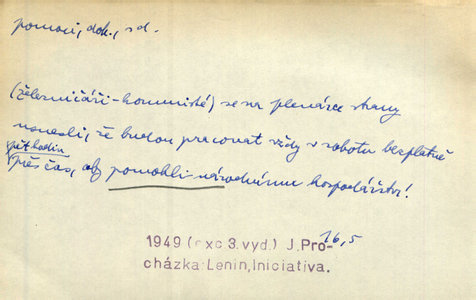 pomoci, dok., sd.
(železničáři-komunisté) se na plenárce strany
usnesli, že budou pracovat vždy v sobotu bezplatně
pět hodin
přes čas, aby pomohli národnímu hospodářství!
16,5
1949 (exc 3.vyd) J.Pro-
cházka:Lenin,Iniciativa.